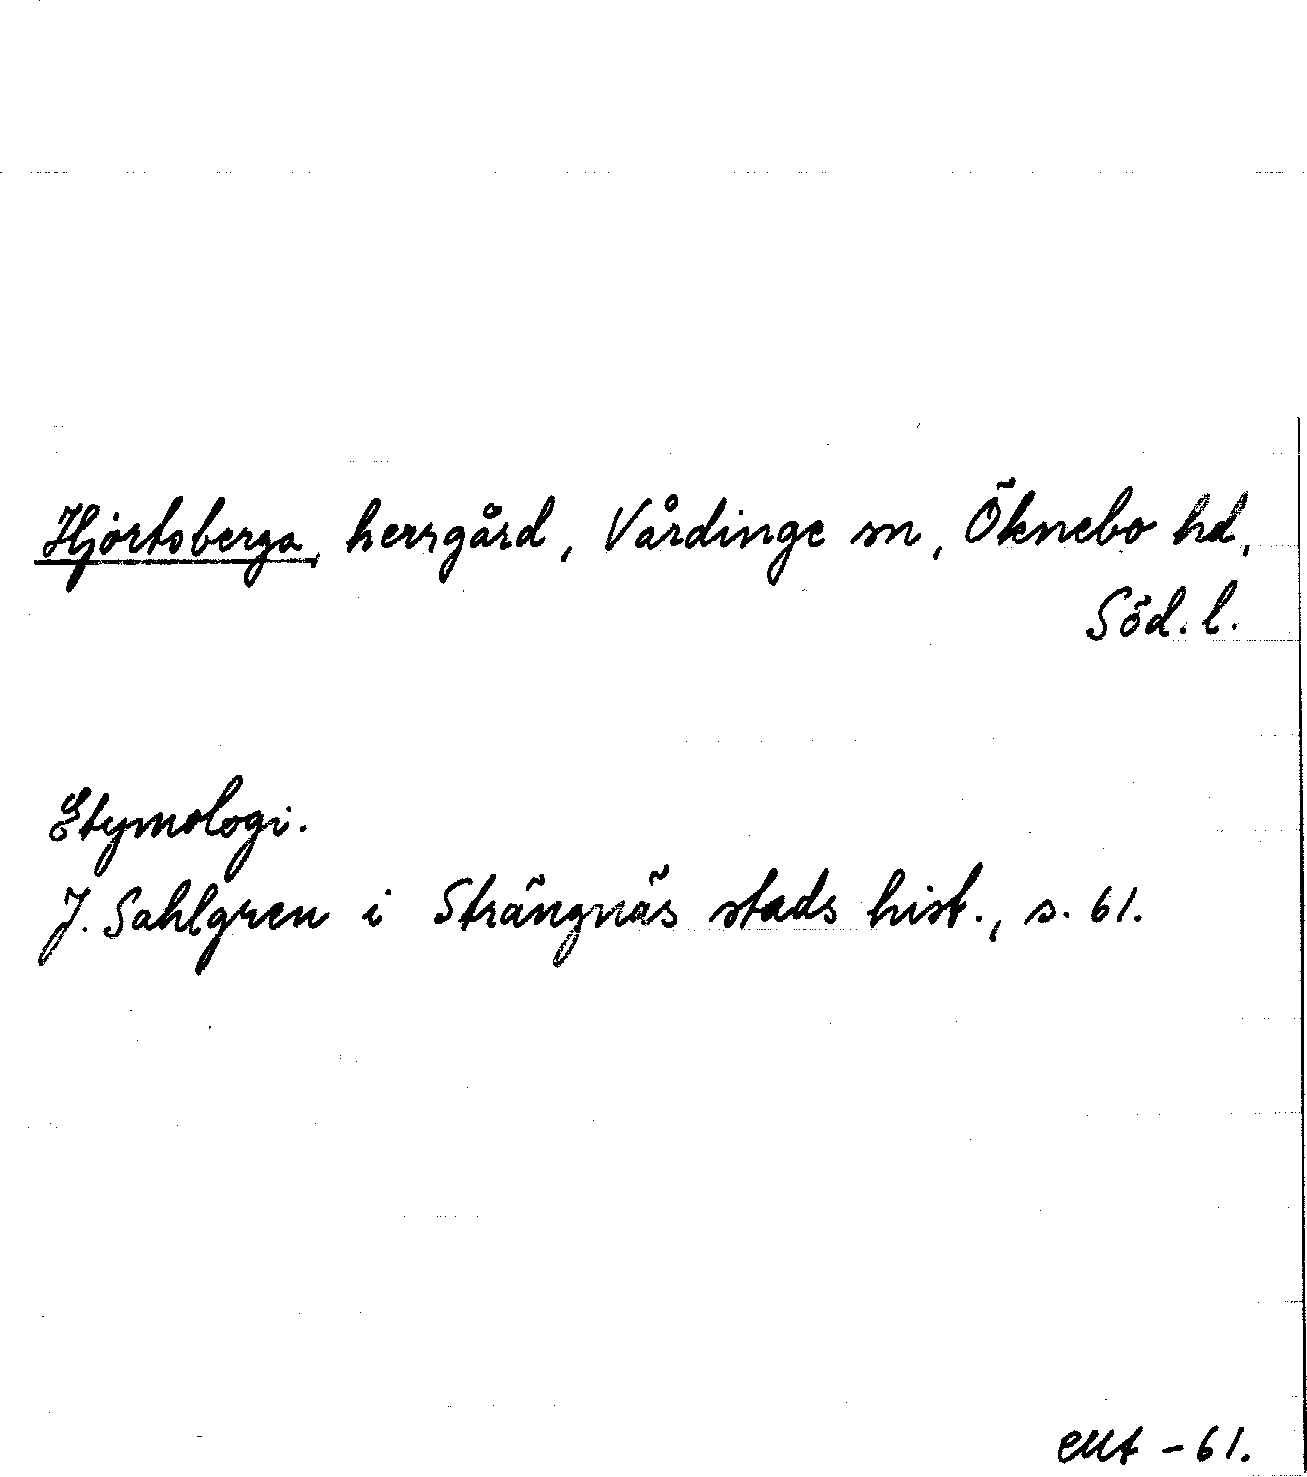 Hjortsberga, herrgård, Vårdinge sn, Öknebo hd,
Söd. l.
Etymologi.
J. Sahlgren i Strängnäs stads hist., s. 61.
-61.